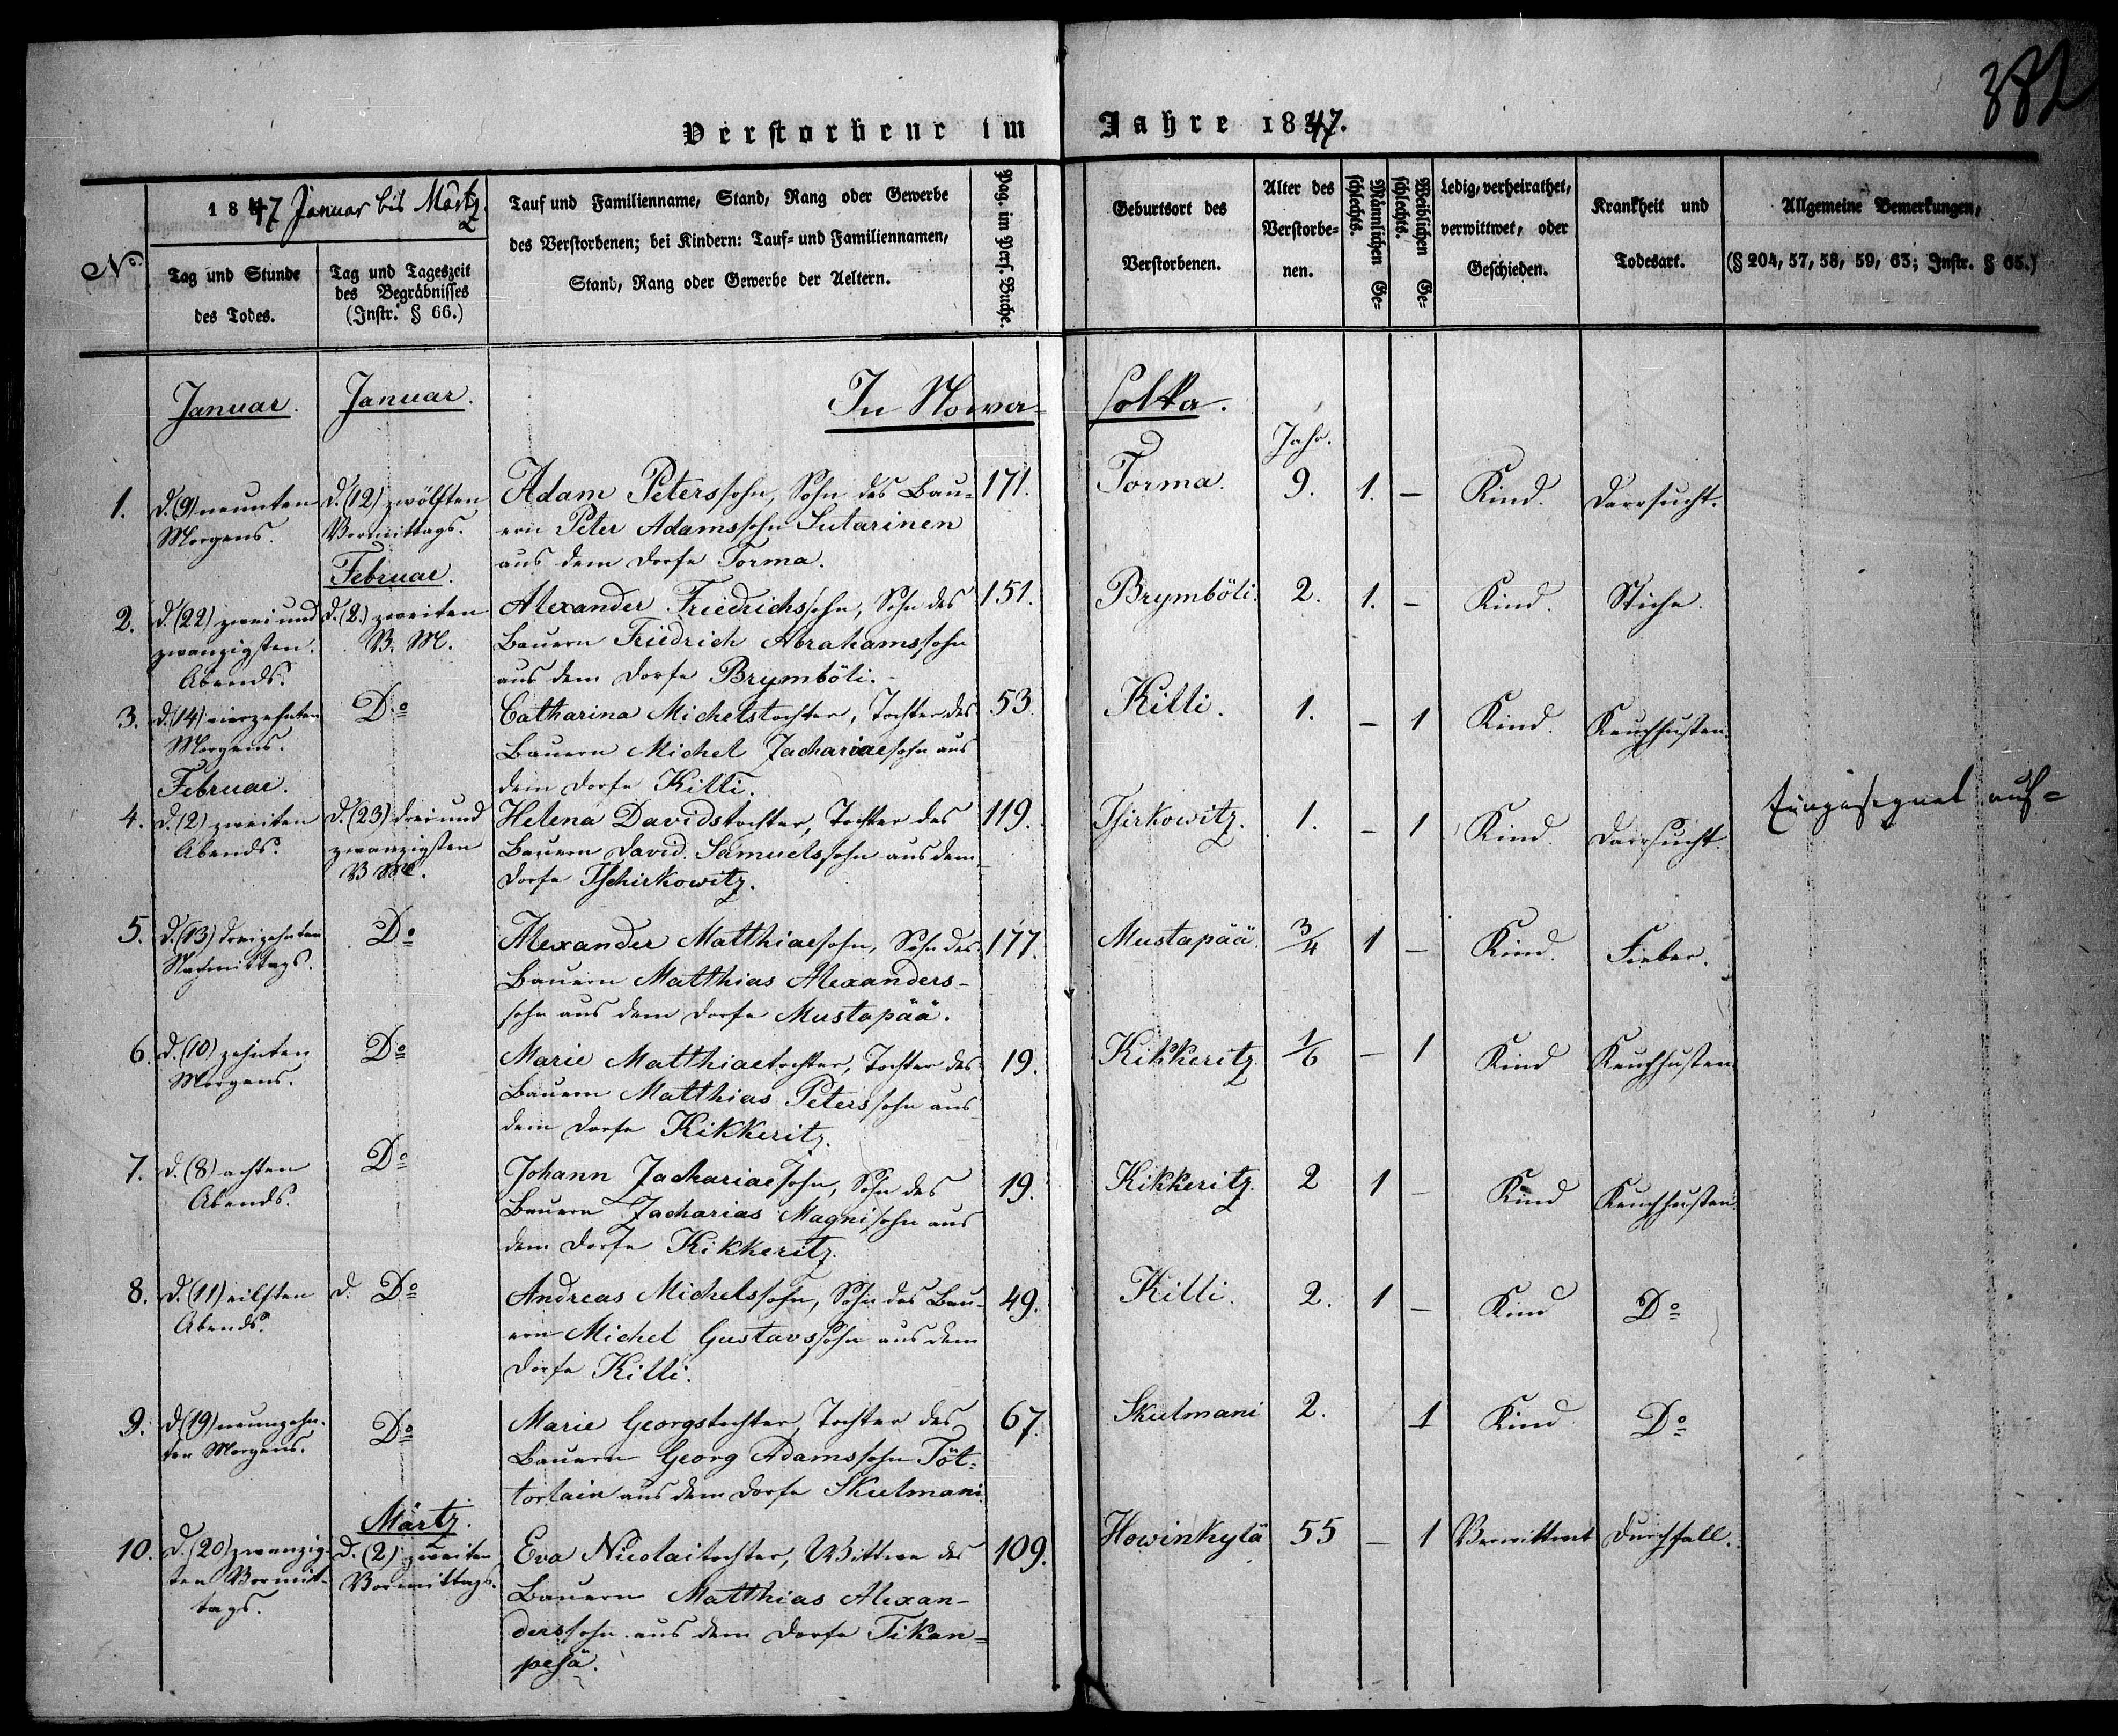 382
Verstorbene im Jahre 1847.
No.
1847 Januar bis Märtz.
Tag und Stunde
des Todes.
Tag und Tageszeit
des Begräbnisses
(Instr. § 66.)
Tauf und Familienname, Stand, Rang oder Gewerbe
des Verstorbenen; bei Kindern: Tauf- und Familiennamen,
Stand, Rang oder Gewerbe der Aeltern.
Pag. im Pers. Buche.
Geburtsort des
Verstorbenen.
Alter des
Verstorbe-
nen.
Männlichen Ge-
schlechts.
Weiblichen Ge-
schlechts.
Ledig, verheirathet,
verwittwet, oder
Geschieden.
Krankheit und
Todesart.
Allgemeine Bemerkungen,
(§ 204, 57, 58, 59, 63; Instr. § 65.)
Januar.
Januar.
In Nowa-
solka.
Jahr.
1.
d. (9) neunten
Morgens.
d. (12) zwölften
Vormittags.
Adam Peterssohn, Sohn des Bau-
ern Peter Adamssohn Sutarinen
aus dem Dorfe Torma.
171.
Torma.
9.
1.
–
Kind.
Darrsucht.
Februar.
2.
d. (22) zwei und
zwanzigsten.
Abends.
d. (2.) zweiten
V. M.
Alexander Friedrichssohn, Sohn des
Bauern Friedrich Abrahamssohn
aus dem Dorfe Brymböli.
151.
Brymböli.
2.
1.
–
Kind.
Stiche.
3.
d. (14) vierzehnten
Morgens.
Do
Catharina Michelstochter, Tochter des
Bauern Michel Zachariaesohn aus
dem Dorfe Killi.
53.
Killi.
1.
–
1
Kind.
Keuchhusten.
Februar.
4.
d. (2) zweiten
Abends.
d. (23) drei und
zwanzigsten
V M.
Helena Davidstochter, Tochter des
Bauern David Samuelssohn aus dem
Dorfe Tschirkowitz.
119.
Tsirkowitz.
1.
–
1
Kind.
Darrsucht.
Eingesegnet auf-
5.
d. (13) dreizehnten
Nachmittags.
Do
Alexander Matthiaesohn, Sohn des
Bauern Matthias Alexanders-
sohn aus dem Dorfe Mustapää.
177.
Mustapää.
3/4
1
–
Kind.
Fieber.
6.
d. (10) zehnten
Morgens.
Do
Marie Matthiaetochter, Tochter des
Bauern Matthias Peterssohn aus
dem Dorfe Kikkeritz.
19.
Kikkeritz.
1/6
–
1
Kind
Keuchhusten.
7.
d. (8) achten
Abends.
Do
Johann Zachariaesohn, Sohn des
Bauern Zacharias Magnisohn aus
dem Dorfe Kikkeritz.
19.
Kikkeritz.
2
1
–
Kind
Keuchhusten.
8.
d. (11) eilften
Abends.
d. Do
Andreas Michelssohn, Sohn des Bau-
ern Michel Gustavssohn aus dem
Dorfe Killi.
49.
Killi.
2.
1
–
Kind
Do
9.
d. (19) neunzehn-
ten Morgens.
Do
Marie Georgstochter, Tochter des
Bauern Georg Adamssohn Töt-
torlain aus dem Dorfe Skulmani.
67.
Skulmani
2.
1
Kind
Do
Märtz.
10.
d. (20) zwanzig-
ten Vormit-
tags.
d. (2) zweiten
Vormittags.
Eva Nicolaitochter, Wittwe des
Bauern Matthias Alexan-
derssohn aus dem Dorfe Tikan-
pesä.
109.
Howinkylä
55
–
1
Verwittwet
Durchfall.